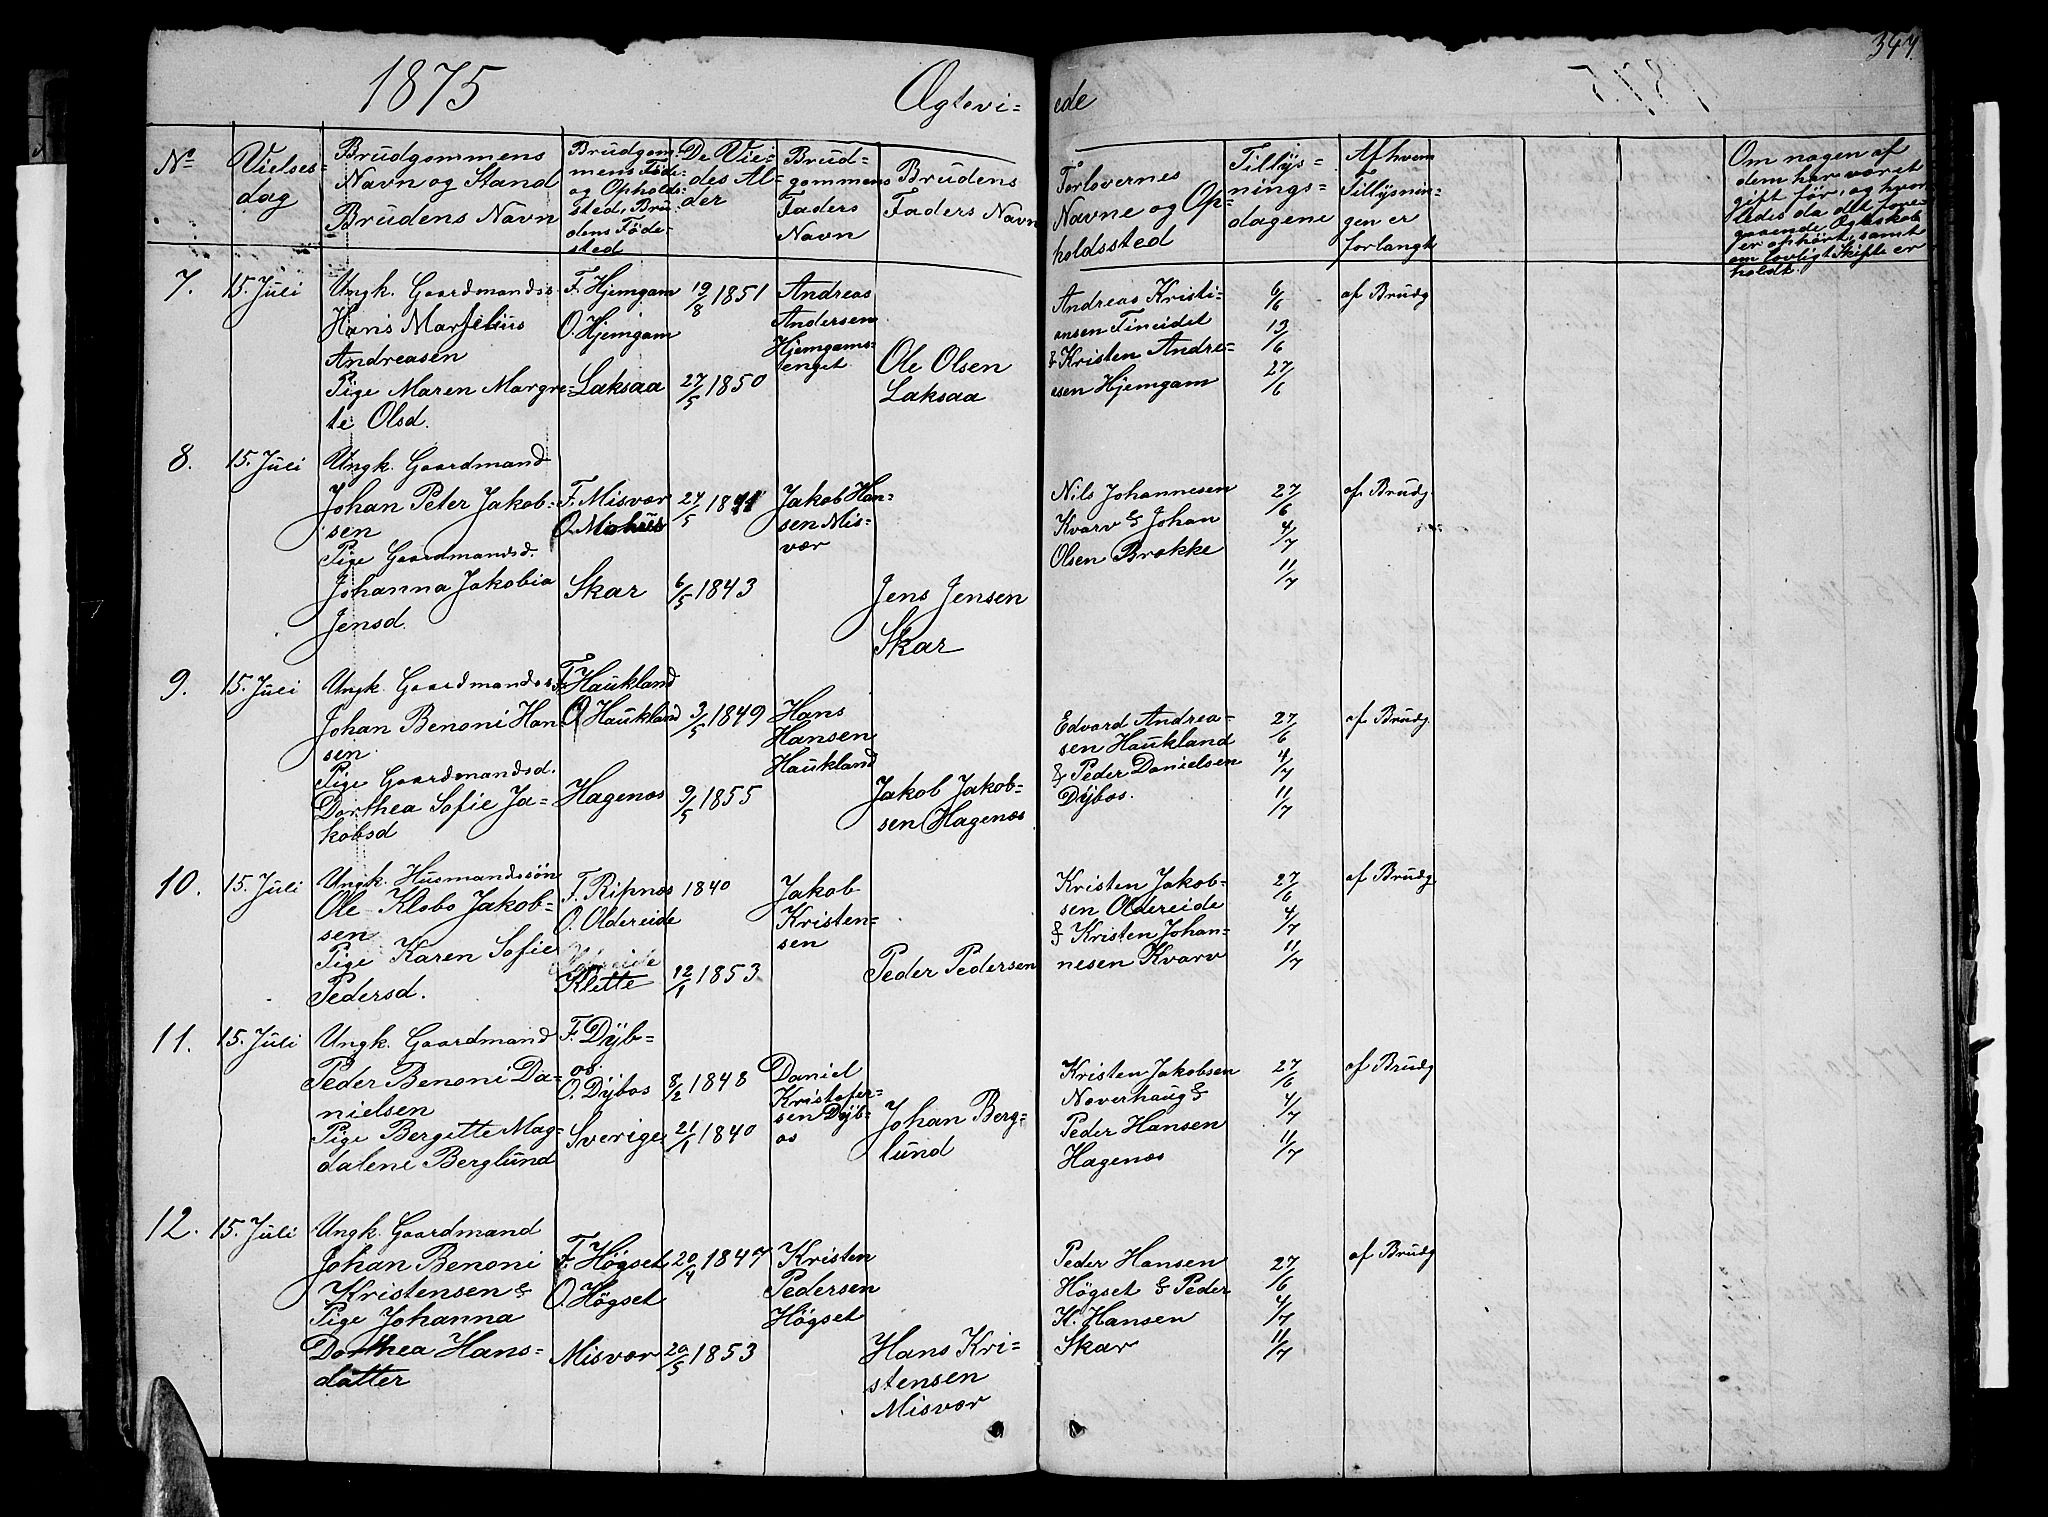 1875
Ægtevi=
ede
347
No
Vielses-
dag
Brudgommens
Navn og Stand
Brudens Navn
Brudgom-
mens Føde
og Opholds-
sted, Bru
dens Føde-
sted
De Vie-
des Al-
der
Brud-
gommens
Faders
Navn
Brudens
Faders Navn
Forlovernes
Navne og Op-
holdssted
Tillÿs-
nings-
dagene
Af hvem
Tillÿsnin-
gen er
forlangt
Om nogen af
dem har været
gift før, og hvor
ledes da det fore-
gaaende Ægteskab
er ophørt, samt
om lovligt Skifte er
holdt.
7.
15. Juli
Ungk. Gaardmands
Hans
Andreasen
Pige Maren Margre-
te Olsd.
F. Hjemgam
O. Hjemgam
Laksaa
19/8 1851
27/5 1850
Andreas
Andersen
Hjemgams-
enget
Ole Olsen
Laksaa
Andreas Kristi-
ansen Fineidet
& Kristen Andre-
esen Hjemgam
6/6
13/6
27/6
af Brudg
8.
15. Juli
Ungk. Gaardmand
Johan Peter Jakob-
sen
Pige Gaardmandsd.
Johanna Jakobia
Jensd.
F. Misvær
O.
Skar
27/5
6/5 1843
Jakob Han-
sen Mis-
vær
Jens Jensen
Skar
Nils Johannesen
Kvarv & Johan
Olsen Brække
27/6
4/7
11/7
af Brudg.
9.
15. Juli
Ungk. Gaardmandss
Johan Benoni Han
sen
Pige Gaardmandsd.
Dorthea Sofie Ja-
kobsd
F. Haukland
O. Haukland
Hagenæs
3/5 1849
9/5 1855
Hans
Hansen
Haukland
Jakob Jakob-
sen Hagenæs
Edvard Andrea-
sen Haukland
& Peder Danielsen
Dÿbos.
27/6
4/7
11/7
af Brudg
10.
15. Juli
Ungk. Husmandssön
Ole Klebo Jakob-
sen
Pige Karen Sofie
Pedersd.
F. Ripnæs
O. Oldereide
Klette
1840
12/1 1853
Jakob
Kristen-
sen
Peder Pedersen
Kristen Jakob-
sen Oldereide
& Kristen Johan-
nesen Kvarv
27/6
4/7
11/7
af Brudg
11.
15. Juli
Ungk. Gaardmand
Peder Benoni Da-
nielsen
Pige Bergitte Mag-
dalene Berglund
F. Dÿb-
os.
O. Dÿbos
Sverige
8/2 1848
21/1 1840
Daniel
Kristofer-
sen Dÿb-
os
Johan Berg-
lund
Kristen Jakobsen
Noverhaug &
Peder Hansen
Hagenæs
27/6
4/7
11/7
af Brudg
12.
15. Juli
Ungk. Gaardmand
Johan Benoni
Kristensen &
Pige Johanna
Dorthea Hans-
datter
F. Högset
O. Högset
Misvær
20/4 1847
20/5 1853
Kristen
Pedersen
Högset
Hans Kri-
stensen
Misvær
Peder Hansen
Högset & Peder
K. Hansen
Skar
27/6
4/7
11/7
af Brudg